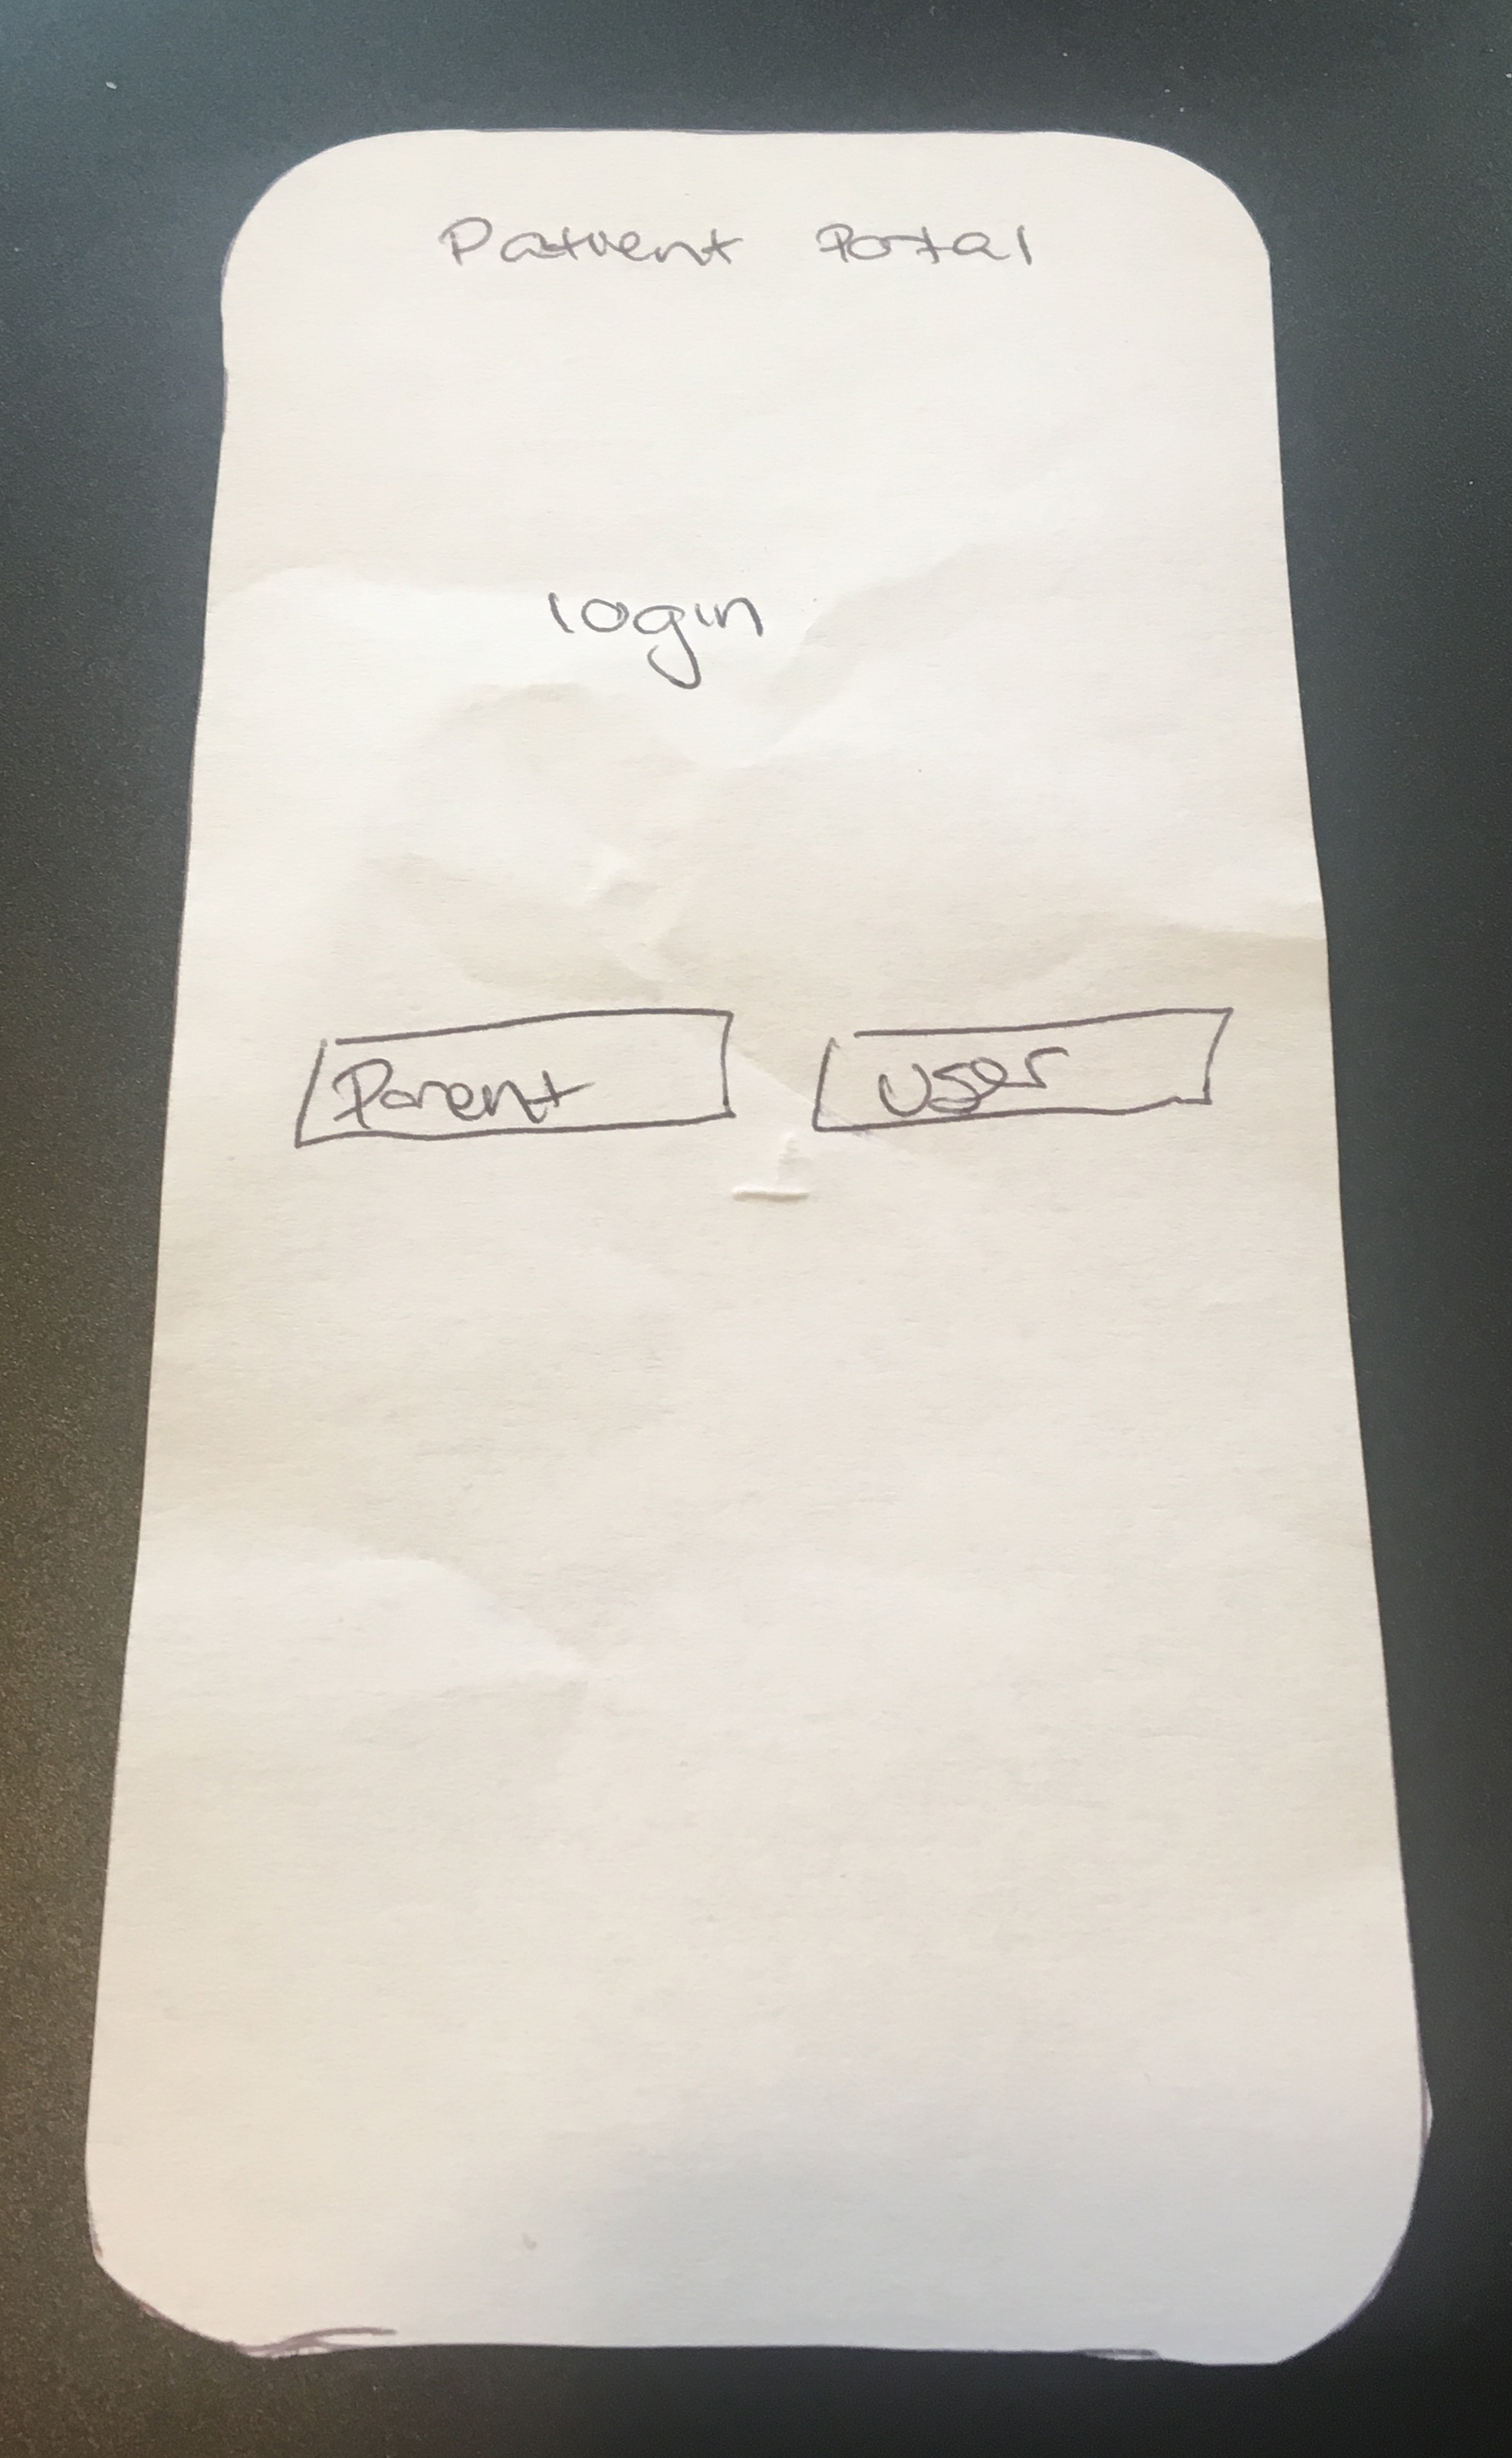 Patient Portal
login
Parent User